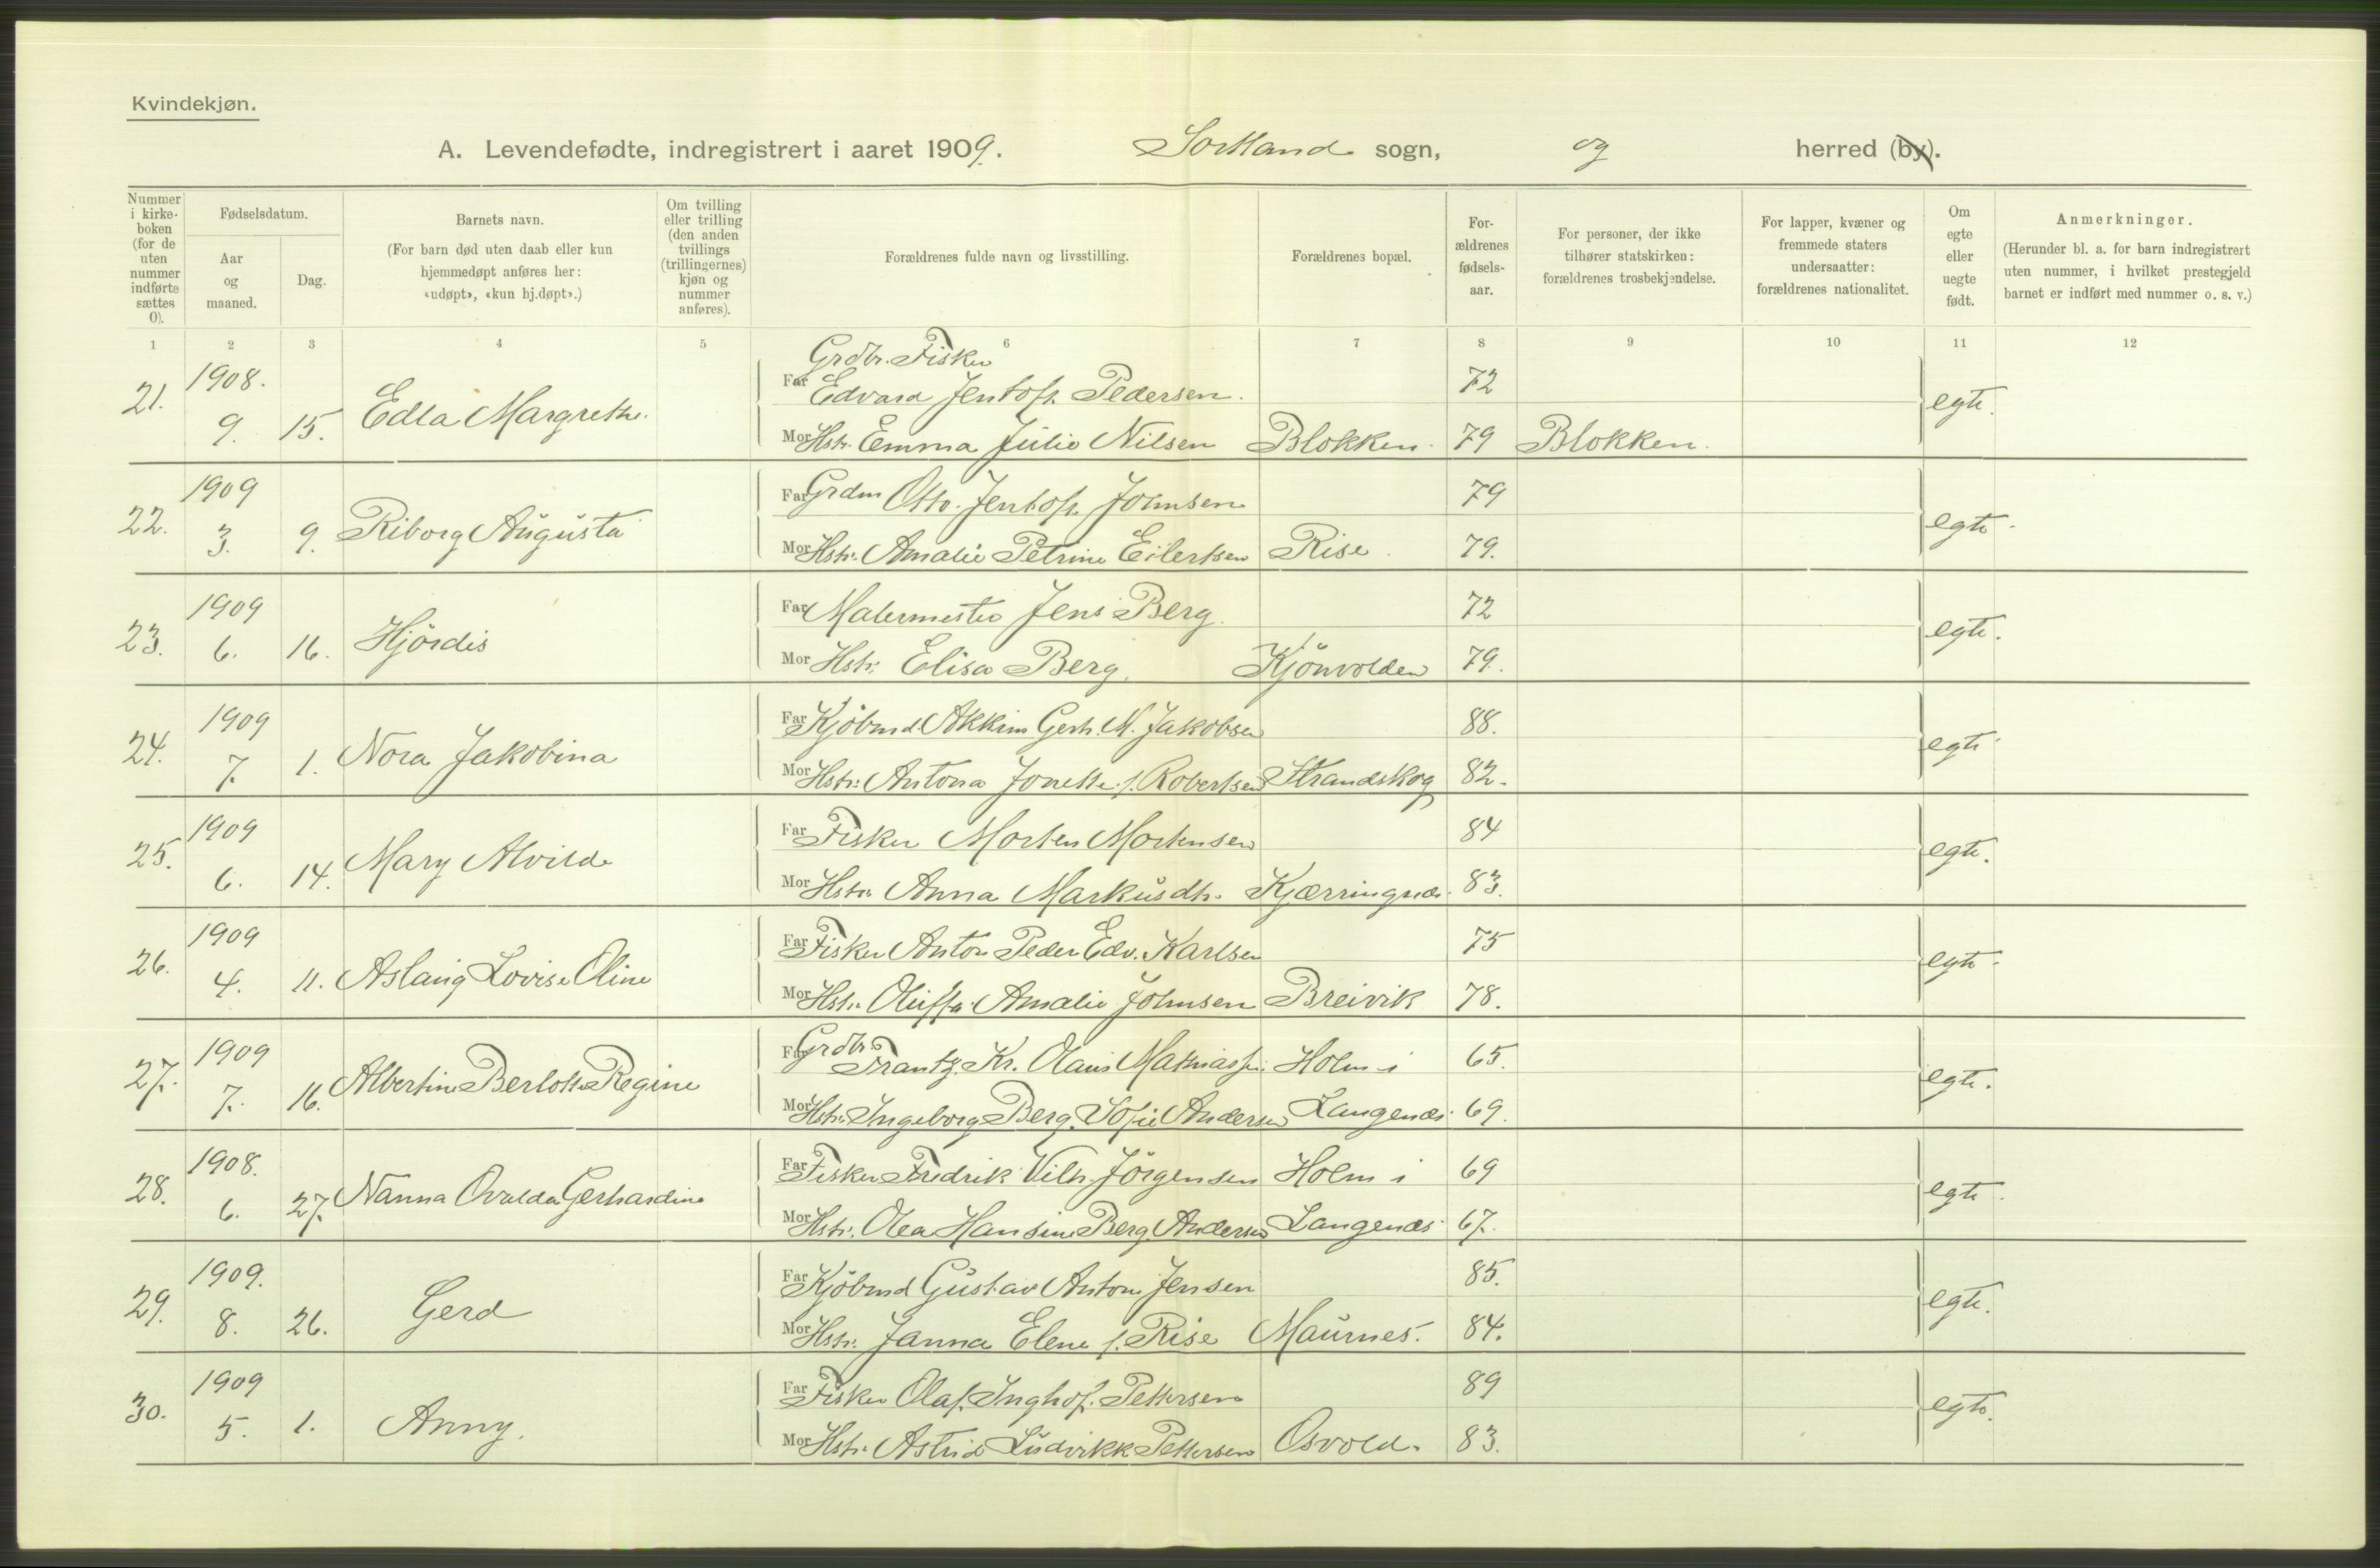 Kvindekjøn.
A. Levendefødte, indregistrert i aaret 1909. Sortland sogn, og herred (by).
Nummer i kirke-boken (for de uten nummer indførte sættes 0).
Fødselsdatum.
Aar og maaned.
Dag.
Barnets navn.
(For barn død uten daab eller kun hjemmedøpt anføres her: «udøpt», «kun hj.døpt».)
Om tvilling eller trilling (den anden tvillings (trillingernes) kjøn og nummer anføres).
Forældrenes fulde navn og livsstilling.
Forældrenes bopæl.
For-ældrenes fødsels-aar.
For personer, der ikke tilhører statskirken: forældrenes trosbekjendelse.
For lapper, kvæner og fremmede staters undersaatter: forældrenes nationalitet.
Om egte eller uegte født.
Anmerkninger.
(Herunder bl. a. for barn indregistrert uten nummer, i hvilket prestegjeld barnet er indført med nummer o. s. v.)
1 2 3 4 5 6 7 8 9 10 11 12
Grdbr. Fisker
21. 1908. 9. 15. Edla Margrethe. Far Edvard Jentoft Pedersen. 72 egte.
Mor Hstr. Emma Julie Nilsen Blokken. 79 Blokken.
22. 1909 3. 9. Riborg Augusta Far Grdm Otto Jentoft Johnsen 79 egte.
Mor Hstr. Amalie Petrine Eilertsen Rise. 79.
23. 1909 6. 16. Hjördis Far Malermester Jens Berg. 72 egte.
Mor Hstr. Elisa Berg. Kjönvolden 79.
24. 1909 7. 1. Nora Jakobina Far Kjöbmd Akkim Gerh. M. Jakobsen 88. egte
Mor Hstr. Antona Jonette f. Robertsen Strandskog 82.
25. 1909 6. 14. Mary Alvilde Far Fisker Morten Mortensen 84 egte.
Mor Hstr. Anna Markusdtr. Kjærringnæs. 83.
26. 1909 4. 11. Aslaug Lovise Oline Far Fisker Anton Peder Edv. Karlsen 75 egte.
Mor Hstr. Oluffa Amalie Johnsen Breivik 78.
27. 1909 7. 16. Albertine Berlotte Regine Far Grdbr. Frantz Kr. Olaus Mathiassen Holm i 65. egte.
Mor Hstr. Ingeborg Berg. Sofie Andersen Langenæs. 69.
28. 1908. 6. 27. Nanna Ovalda Gerhardine Far Fisker Fredrik Vilh. Jörgensen Holm i 69 egte.
Mor Hstr. Olea Hansine Berg. Andersen Langenæs. 67.
29. 1909. 8. 26. Gerd Far Kjöbmd Gustav Anton Jensen 85. egte.
Mor Hstr. Janna Elene f. Rise Maurnes. 84.
30. 1909 5. 1. Anny. Far Fisker Olaf Inghof. Pettersen 89 egte.
Mor Hstr. Astrid Ludvikke Pettersen Osvold. 83.